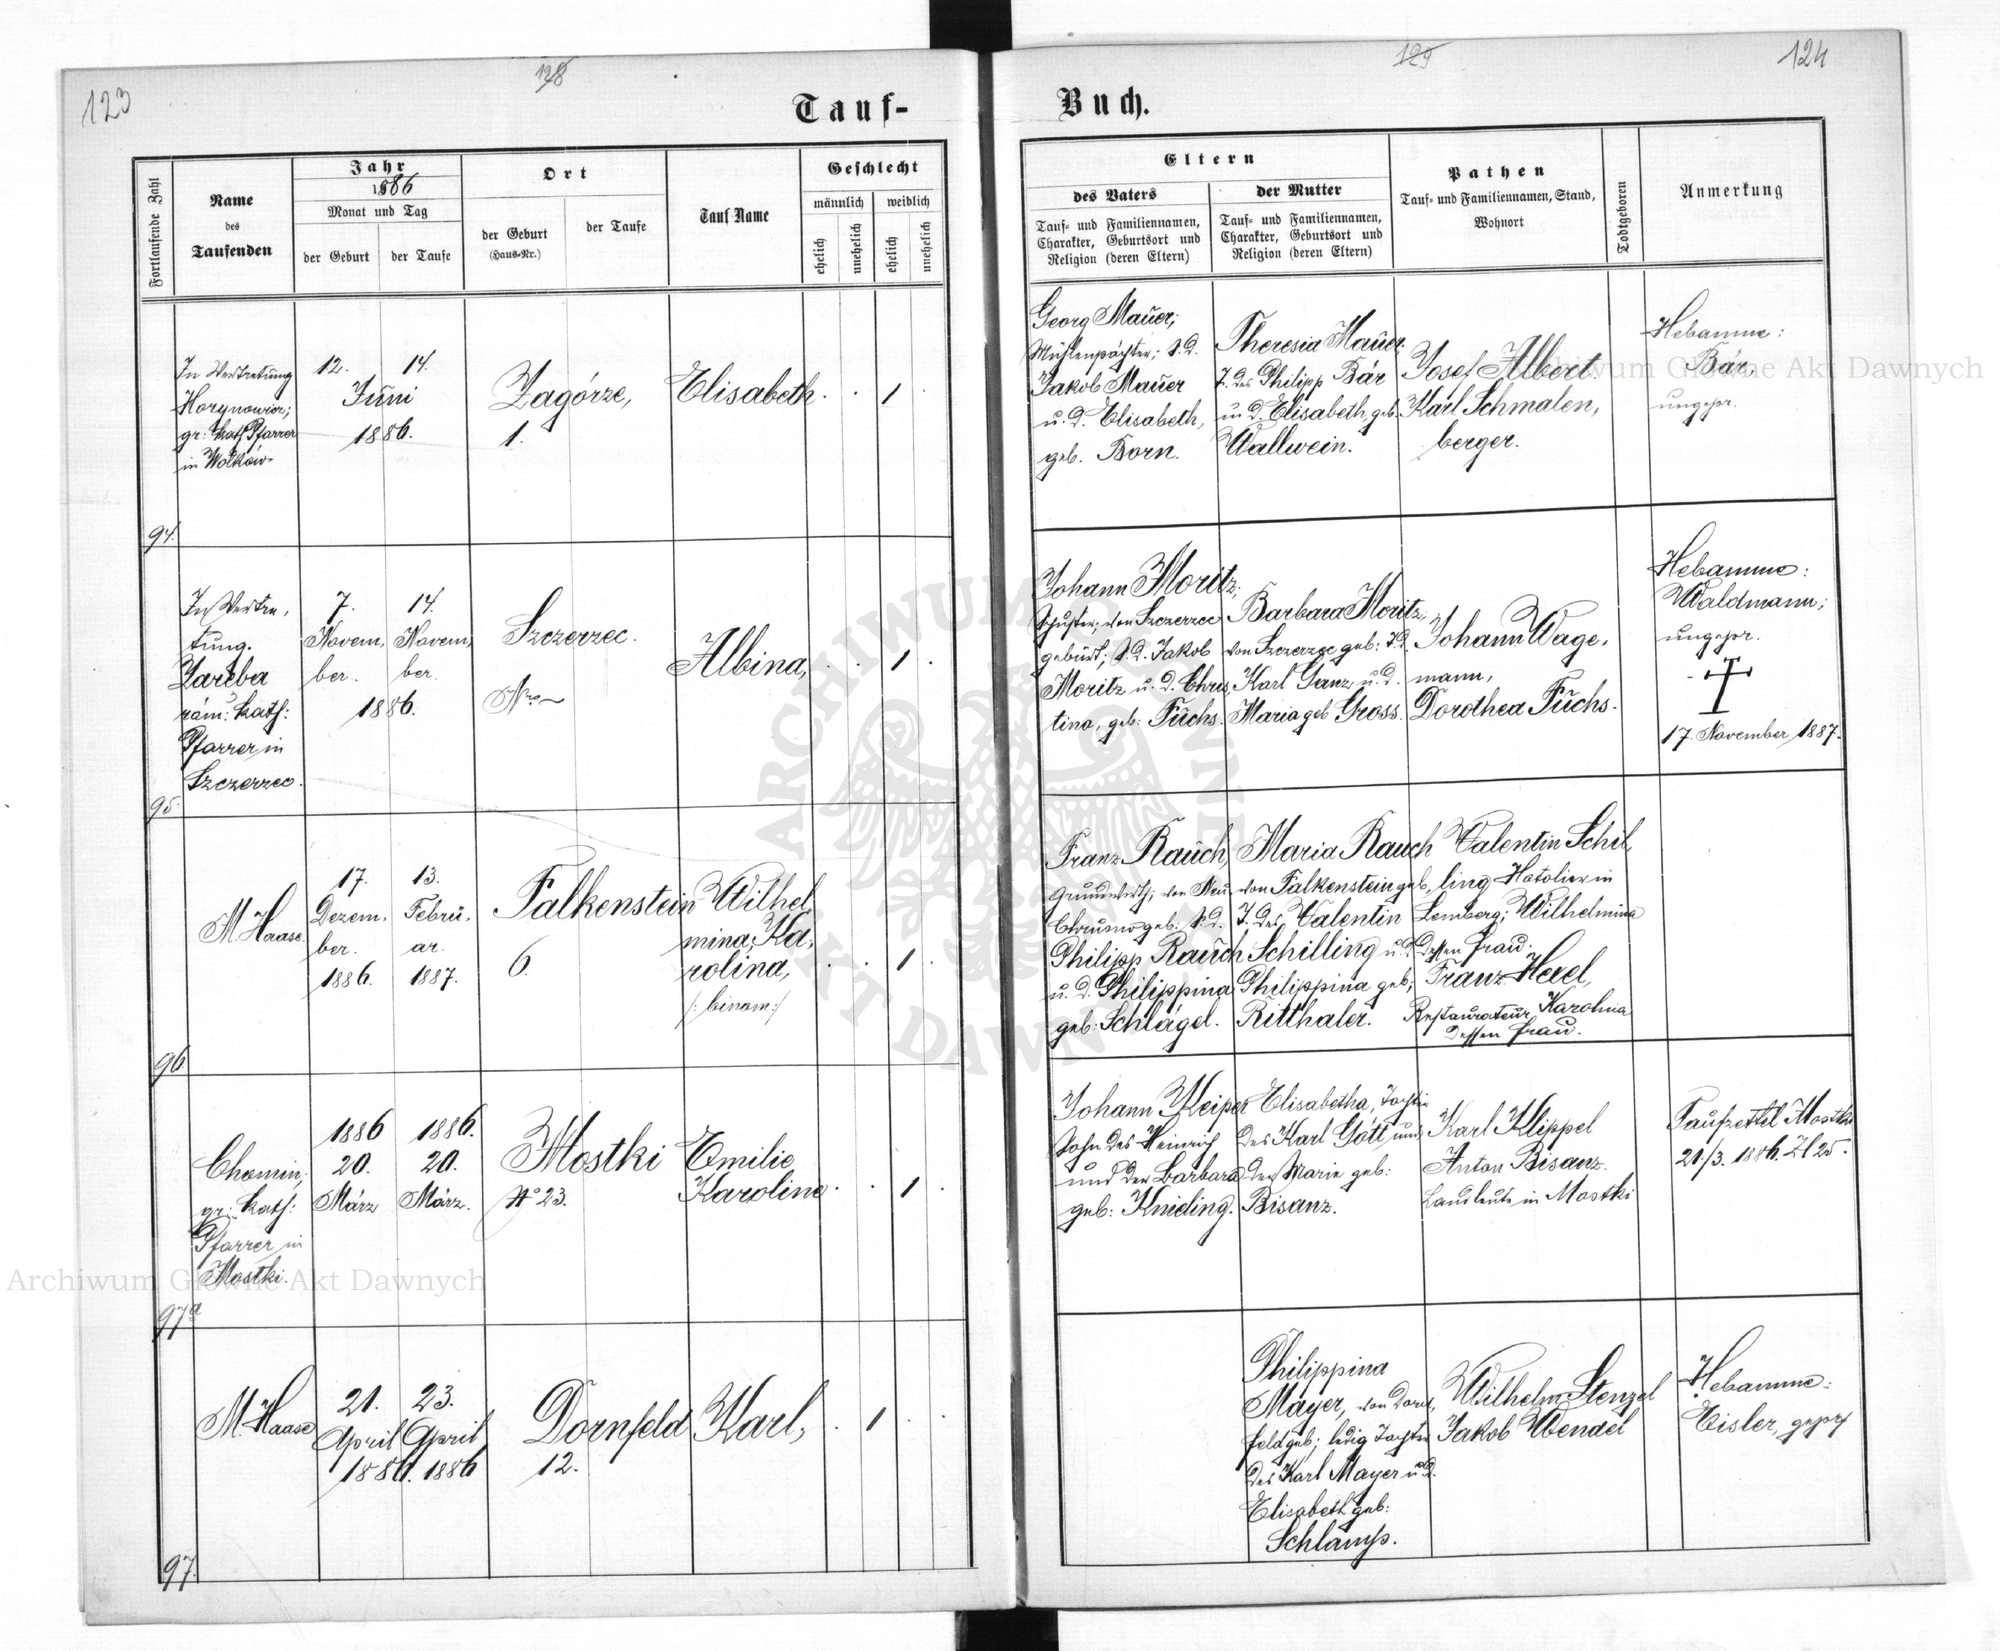 123
128
Tauf-
Fortlaufende Zahl
Name
des
Taufenden
Jahr
1886
Monat und Tag
der Geburt
der Taufe
Ort
der Geburt
(Haus-Nr.)
der Taufe
Tauf Name
Geschlecht
männlich
weiblich
ehelich
unehelich
ehelich
unehelich
94.
In Vertretung
Horynowicz;
gr: kath Pfarrer
in Wolków
12. 14.
Juni
1886.
Zagórze,
1.
Elisabeth
1
95.
In Vertre,
tung.
Zareba
röm: kath:
Pfarrer in
Szczerzec.
7. 14.
Novem, Novem,
ber. ber.
1886.
Szczerzec.
Nro ~
Albina,
1
96.
M. Haase.
17. 13.
Dezem. Febru.
ber. ar.
1886. 1887.
Falkenstein
6.
Wilhel,
mina, Ka,
rolina,
/: binom :/
1
97a
Chomin,
gr: kath:
Pfarrer in
Mostki.
1886 1886.
20. 20.
März März.
Mostki
No 23.
Emilie
Karoline
1
97.
M. Haase
21. 23.
April April
1886. 1886
Dornfeld
12.
Karl,
1
129
124
Buch.
Eltern
des Vaters
Tauf- und Familiennamen,
Charakter, Geburtsort und
Religion (deren Eltern)
der Mutter
Tauf- und Familiennamen,
Charakter, Geburtsort und
Religion (deren Eltern)
Pathen
Tauf- und Familiennamen, Stand,
Wohnort
Todtgeboren
Anmerkung
Georg Mauer;
Mühlenpächter; S. D.
Jakob Mauer
u. d. Elisabeth,
geb. Born.
Theresia Mauer,
T. des Philipp Bär
u. d. Elisabeth geb.
Wallwein.
Josef Albert.
Karl Schmalen,
berger.
Hebamme:
Bär,
ungepr.
Johann Moritz;
Schuster, von Szczerzec
gebürt; S. D. Jakob
Moritz u. d. Chris,
tina, geb: Fuchs.
Barbara Moritz;
von Szczerzec geb: T. d.
Karl Ganz u. d.
Maria geb Gross.
Johann Wage,
mann,
Dorothea Fuchs.
Hebamme:
Waldmann;
ungepr.
17. November 1887.
Franz Rauch,
Grundwirth; von Neu
Chrusno geb: S. d.
Philipp Rauch
u. d. Philippina
geb: Schlägel.
Maria Rauch
von Falkenstein geb,
T. des Valentin
Schilling u. d.
Philippina geb;
Ritthaler.
Valentin Schil,
ling Hotelier in
Lemberg; Wilhelmina
dessen Frau.
Franz Hexel,
Restaurateur, Karolina
dessen Frau.
Johann Keiper
Sohn des Heinrich
und der Barbara
geb: Knieding.
Elisabetha, Tochter
des Karl Gött und
der Marie geb:
Bisanz.
Karl Klippel
Anton Bisanz.
Landleute in Mostki
Taufzettel Mostki
21/3. 1886. Zl 25.
Philippina
Mayer, von Dorn,
feld geb; ledig Tochter
des Karl Mayer u. d.
Elisabeth geb:
Schlamp.
Wilhelm Stenzel
Jakob Wendel
Hebamme:
Eisler, geprf
Archiwum Główne Akt Dawnych
Archiwum Główne Akt Dawnych
ARCHIWUM GŁÓWNE AKT DAWNYCH